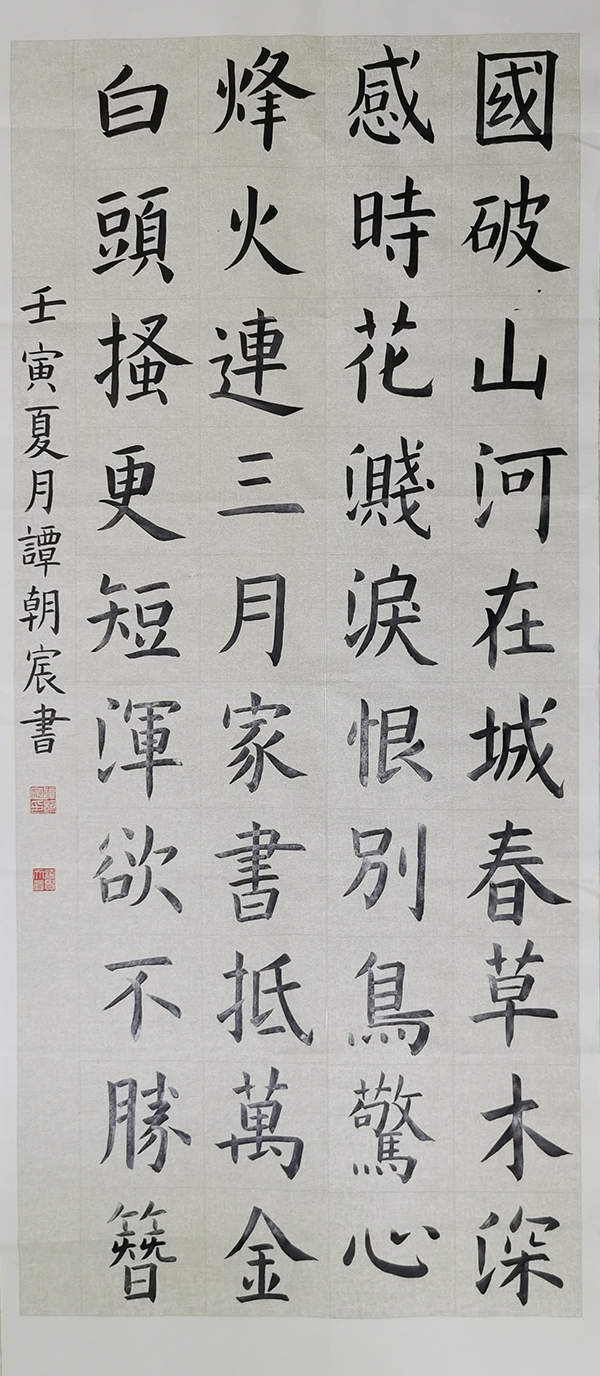 國破山河在城春草木深
感時花濺淚恨別鳥驚心
烽火連三月家書抵萬金
白頭搔更短渾欲不勝簪
壬寅夏月譚朝宸書